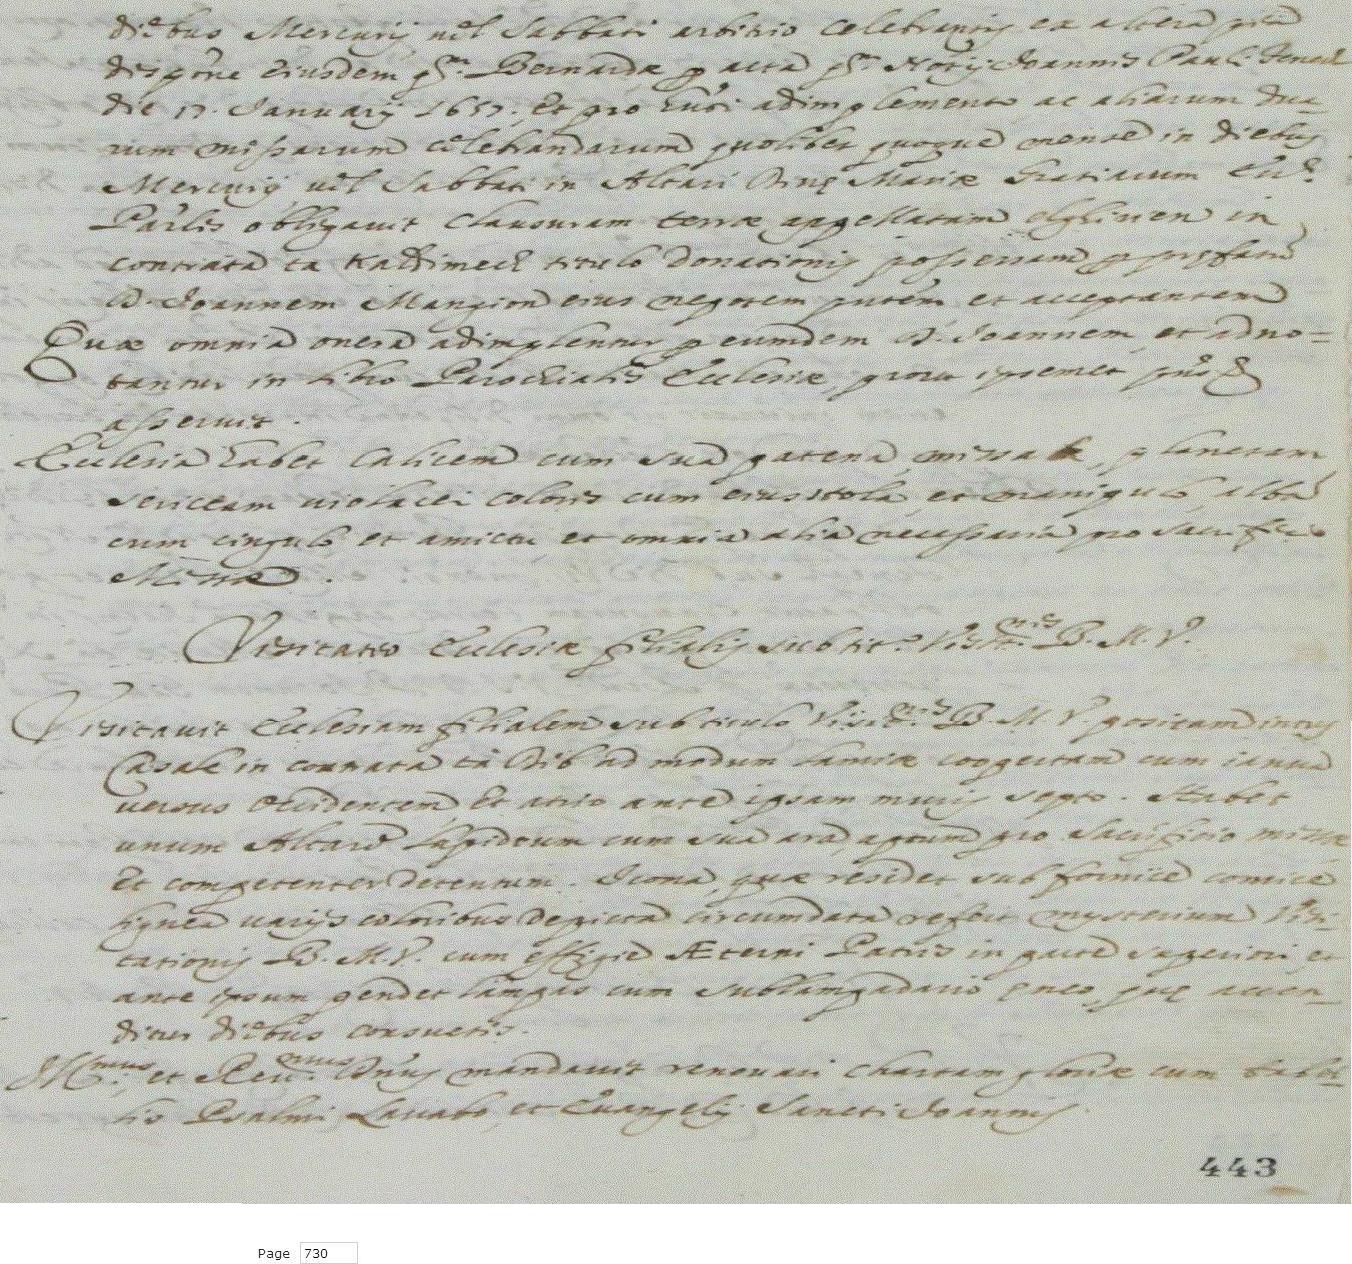 diebus Mercurij vel Sabbati arbitrio Celebrantis ex altera
eiusdem Bernardæ acta Joannis Pauli
die 17. Januarij 1657. Et pro adimplemento ac aliarum dua-
rum missarum celebrandarum quolibet quoque mense in diebus
Mercurij vel Sabbati in Altari Mariæ Gratiarum
obligavit Clausuram terræ appellatam in
contrata ta titulo donationis possessam
D. Joannem Mangion eius nepotem et acceptantem
Quæ omnia onera adimplentur p eumdem D. Joannem, et adno-
tantur in libro Parochialis Ecclesiæ, prout ipsemet
asseruit.
Ecclesia habet Calicem cum sua patena, missale, planetam
sericeam violacei coloris cum eius stola, et manipulo, alba
cum cingulo et amictu et omnia alia necessaria pro sacrificio
Missæ.
Visitatio Ecclesiæ filialis sub tit.o Visit.nis B. M. V.
Visitavit Ecclesiam filialem sub titulo B. M. V. positam intus
Casale in contrata ta ad modum lamiæ coopertam cum ianua
versus Occidentem Et atrio ante ipsam muris septo. Habet
unum Altare lapideum cum sua ara, aptum pro sacrificio missæ
Et competenter detentum. Icona, quæ residet sub fornice cornice
lignea varijs coloribus depicta circumdata refert mysterium Visi-
tationis B. M. V. cum effigie Æterni Patris in parte superiori, et
ante ipsum pendet lampas cum sublampadario quæ accen-
ditur diebus consuetis.
Ill.mus et Rev.mus Dnus mandavit renovari chartam gloriæ cum tabel-
lis Psalmi Lavabo, et Evangelij Sancti Joannis.
443
Page 730